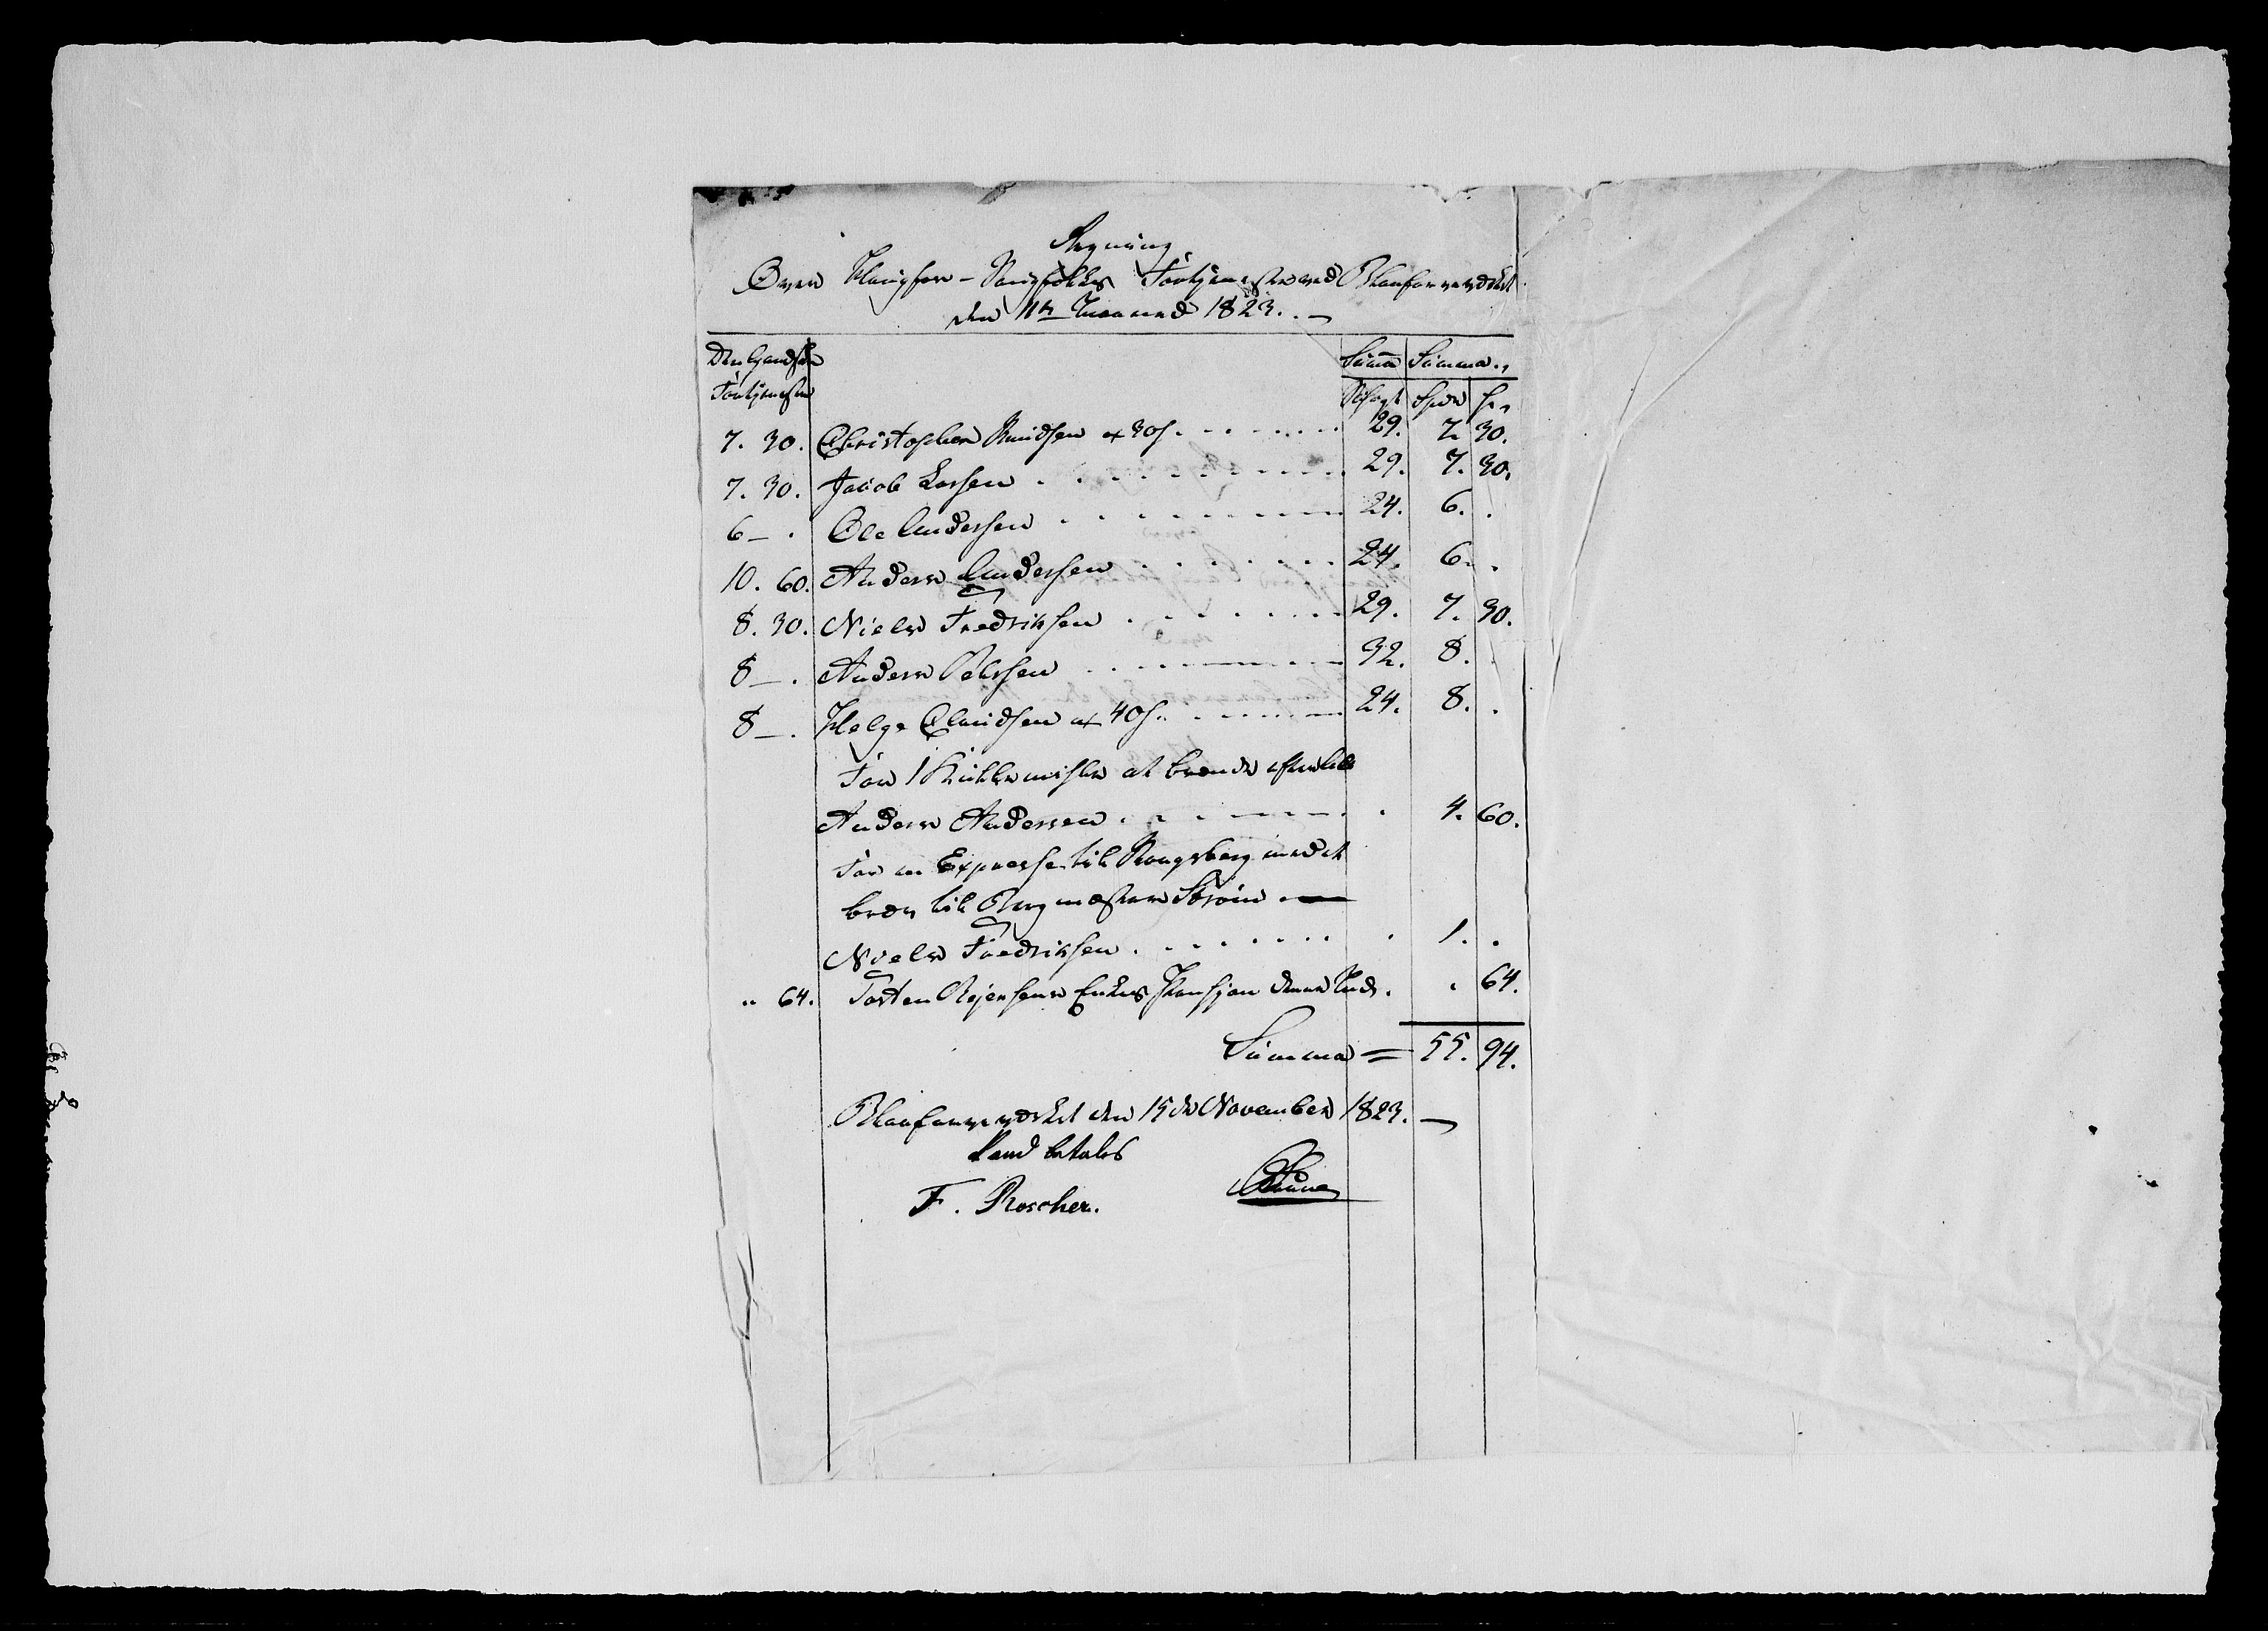 Regning
Over Haugfar - Vaugfolkes Fortjeneste ved Blaafarveværket
den 11te Maaned 1823.
Den Gandske Fortjeneste Summa Summa
Schigt Spdr s
7. 30. Christopher Knudsen a 30 s. 29. 7. 30.
7. 30. Jacob Larsen 29. 7. 30.
6 - . Ole Andersen 24. 6. .
10. 60. Anders Andersen 24. 6. .
8. 30. Niels Fredriksen 29. 7. 30.
8 - . Anders Pedersen 32. 8. .
8 - . Helge Knudsen a 40 s. 24. 8. .
For 1 at brende
Anders Andersen . 4. 60.
For en Expresse til Kongsberg med et
brev til Bergmester Strøm
Niels Fredriksen . 1. .
" 64. Torsten Enkes Pansjon . . 64.
Summa = 55. 94.
Blaafarveværket den 15de November 1823.
kand betales
F. Roscher.